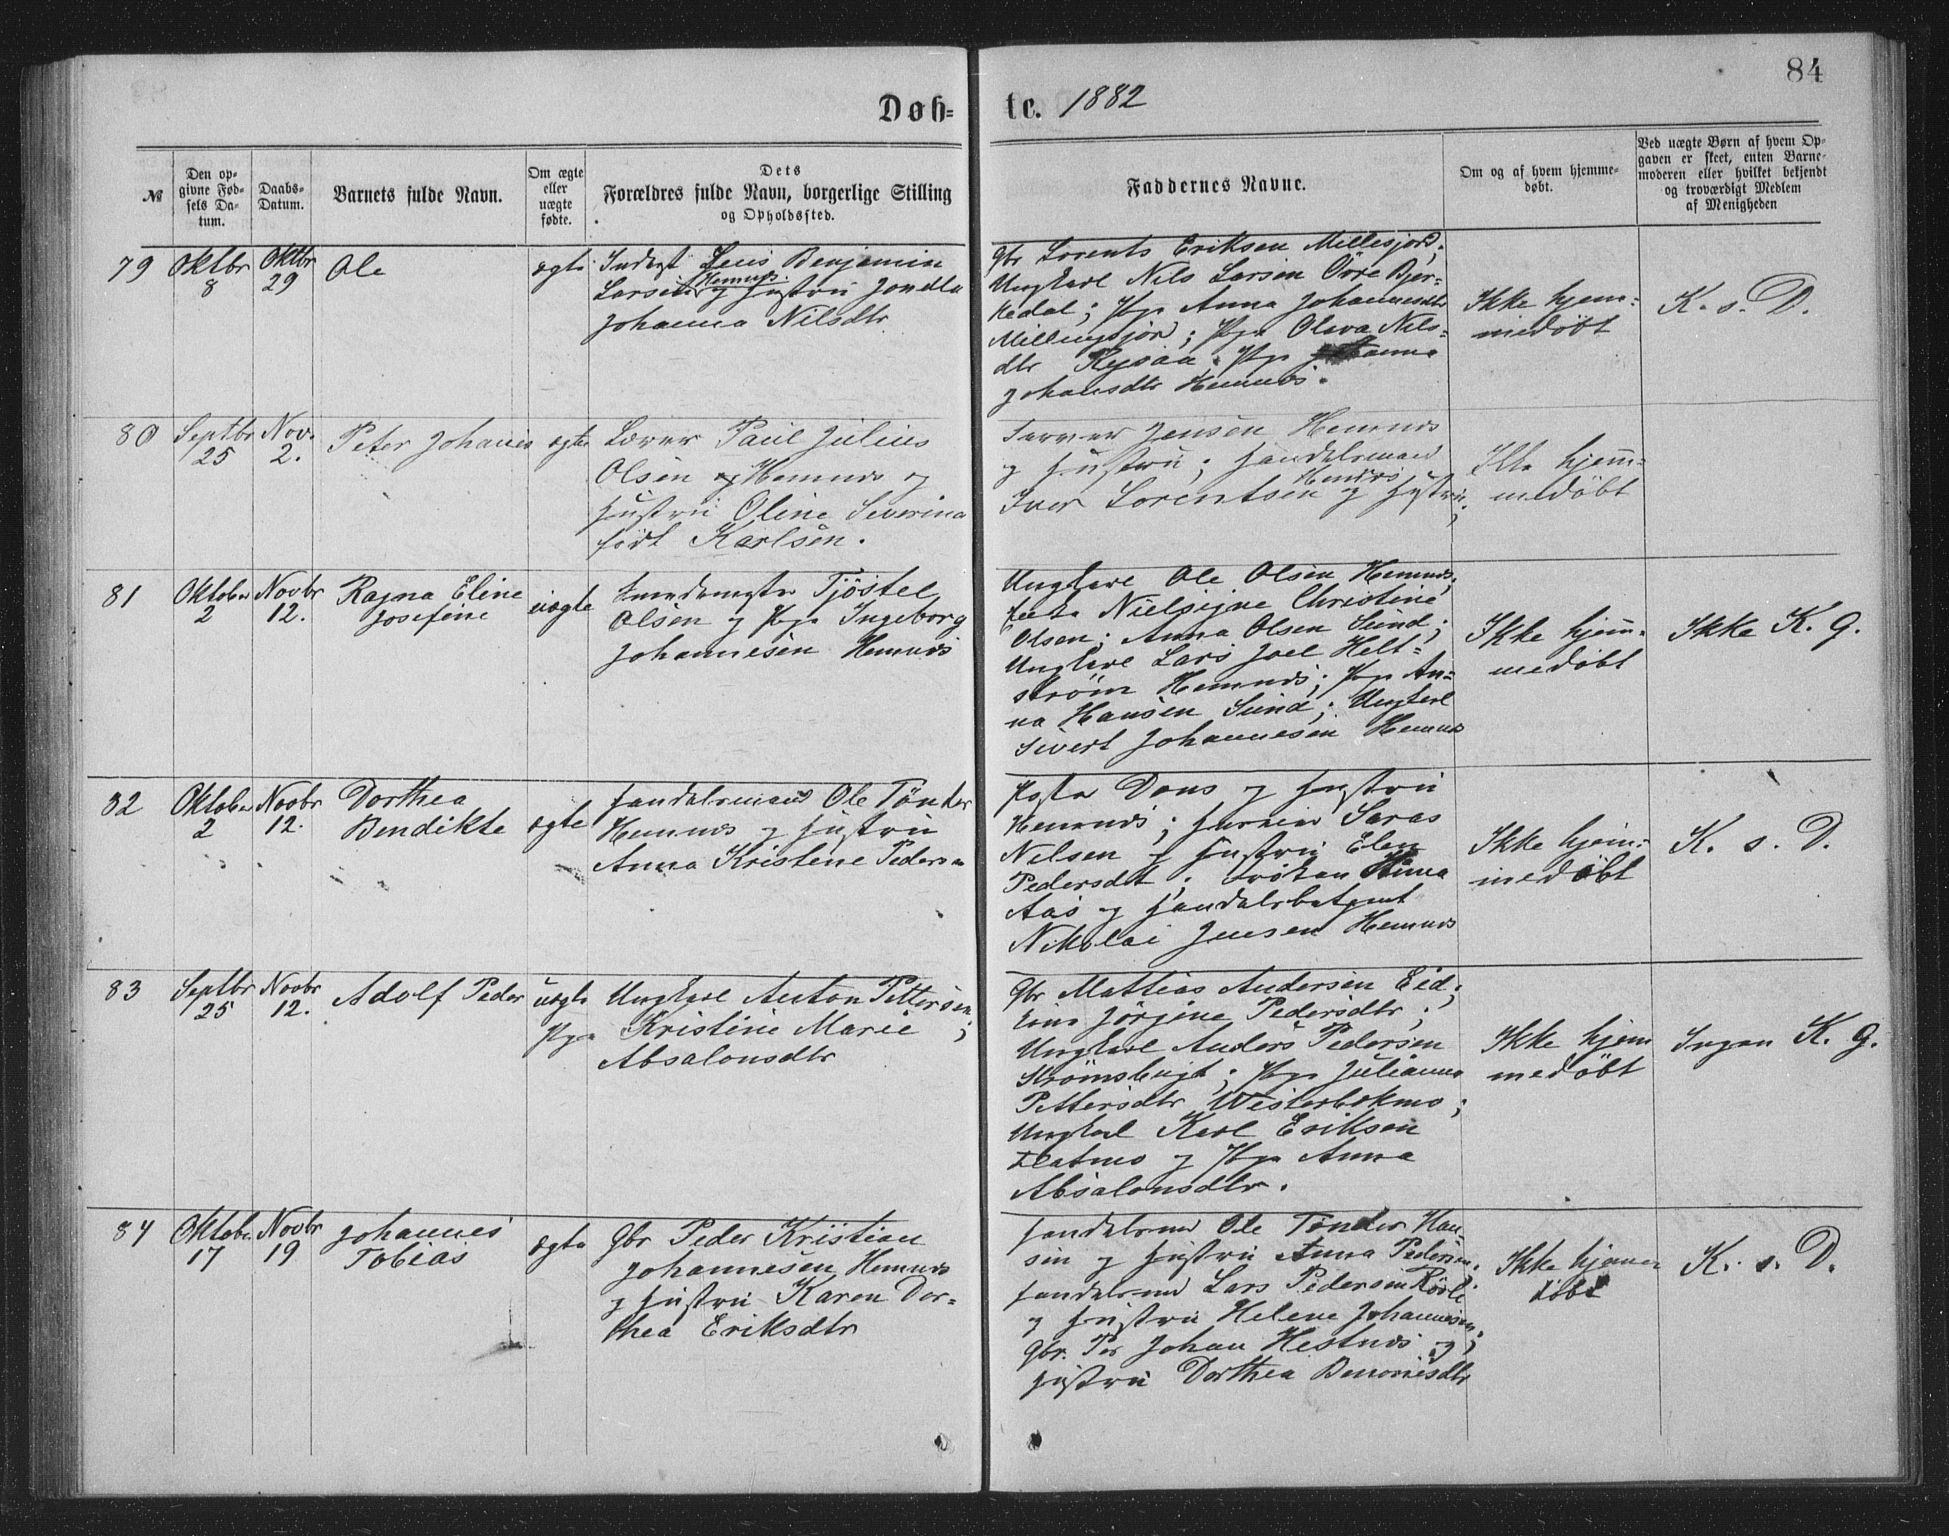 84
Døb-
te. 1882
№
Den op-
givne Fød-
sels Da-
tum.
Daabs-
Datum.
Barnets fulde Navn.
Om ægte
eller
uægte
fødte.
Dets
Forældres fulde Navn, borgerlige Stilling
og Opholdssted.
Faddernes Navne.
Om og af hvem hjemme-
døbt.
Ved uægte Børn af hvem Op-
gaven er skeet, enten Barne-
moderen eller hvilket bekjendt
og troværdigt Medlem
af Menigheden
79
Oktbr
8
Oktbr
29
Ole
ægte
Inderst Benjamin
Hemnæs
Larsen og Hustru
Johanna Nilsdtr
Gbr Lorents Eriksen Millesjord;
Ungkarl Nils Larsen Øvre Bjer-
kadal; Pige Anna Johannesdtr
Millingsjor; Pige Oleva Nils-
dtr Pige
Johansdtr Hemnæs.
Ikke hjem-
medøbt
K. s. D.
80
Septbr
25
Nov.
2.
Peter Johanes
ægte
Lærer Paul Julius
Olsen Hemnæs og
Hustru Oline Severina
født Karlsen.
Farver Jensen Hemnæs
og Hustru; Handelsmand
Hemnæs
Iver Lorentsen og Hustru;
Ikke hjem-
medøbt
81
Oktober
2
Novbr
12.
Ragna Eline
Josefine
uægte
Smedemester Tjøstel
Olsen og Pige Ingeborg
Johannesen Hemnæs
Ungkarl Ole Olsen Hemnæs;
Nielsigne Christine
Olsen; Anna Olsen Sund;
Ungkarl Lars Joel Helt-
strøm Hemnæs; Pige An-
na Hansen Sund; Ungkarl
Sivert Johannesen Hemnæs
Ikke hjem-
medøbt
Ikke K. G.
82
Oktober
2
Novbr
12.
Dorthea
Bendikte
ægte
Handelsmand Ole Tønder
Hemnæs og Hustru
Anna Kristine Pedersen
Pastor Dons og Hustru
Hemnæs; Saras
Nelsen og Hustru Elen
Pedersdt; Frøken Anna
Aas og Handelsbetjent
Nikolai Jensen Hemnæs
Ikke hjem-
medøbt
K. s. D.
83
Septbr
25
Novbr
12.
Adolf Peder
uægte
Ungkarl Anton Pettersen;
Pige Kristine Marie
Absalonsdtr
Gbr Mattias Andersen Eid;
Jørgine Pedersdtr;
Ungkarl Anders Pedersen
Strømsbugt; Pige Julianna
Pettersdtr Westerbekmo;
Ungkarl Karl Eriksen
Flatmo og Pige Anna
Absalonsdtr.
Ikke hjem
medøbt
Ingen K. G.
84
Oktober
17
Novbr
19
Johannes
Tobias
ægte
Gbr Peder Kristian
Johannesen Hemnæs
og Hustru Karen Dor-
thea Eriksdtr
Handelsmd Ole Tønder Han-
sen og Hustru Anna Pedersen.
Handelsmd Lars Pedersen Røsli
og Hustru Helene Johannesen;
Gbr. Per Johan Hestnæs og
Hustru Dorthea Benoniesdtr
Ikke hjemme
døbt
K. s. D.